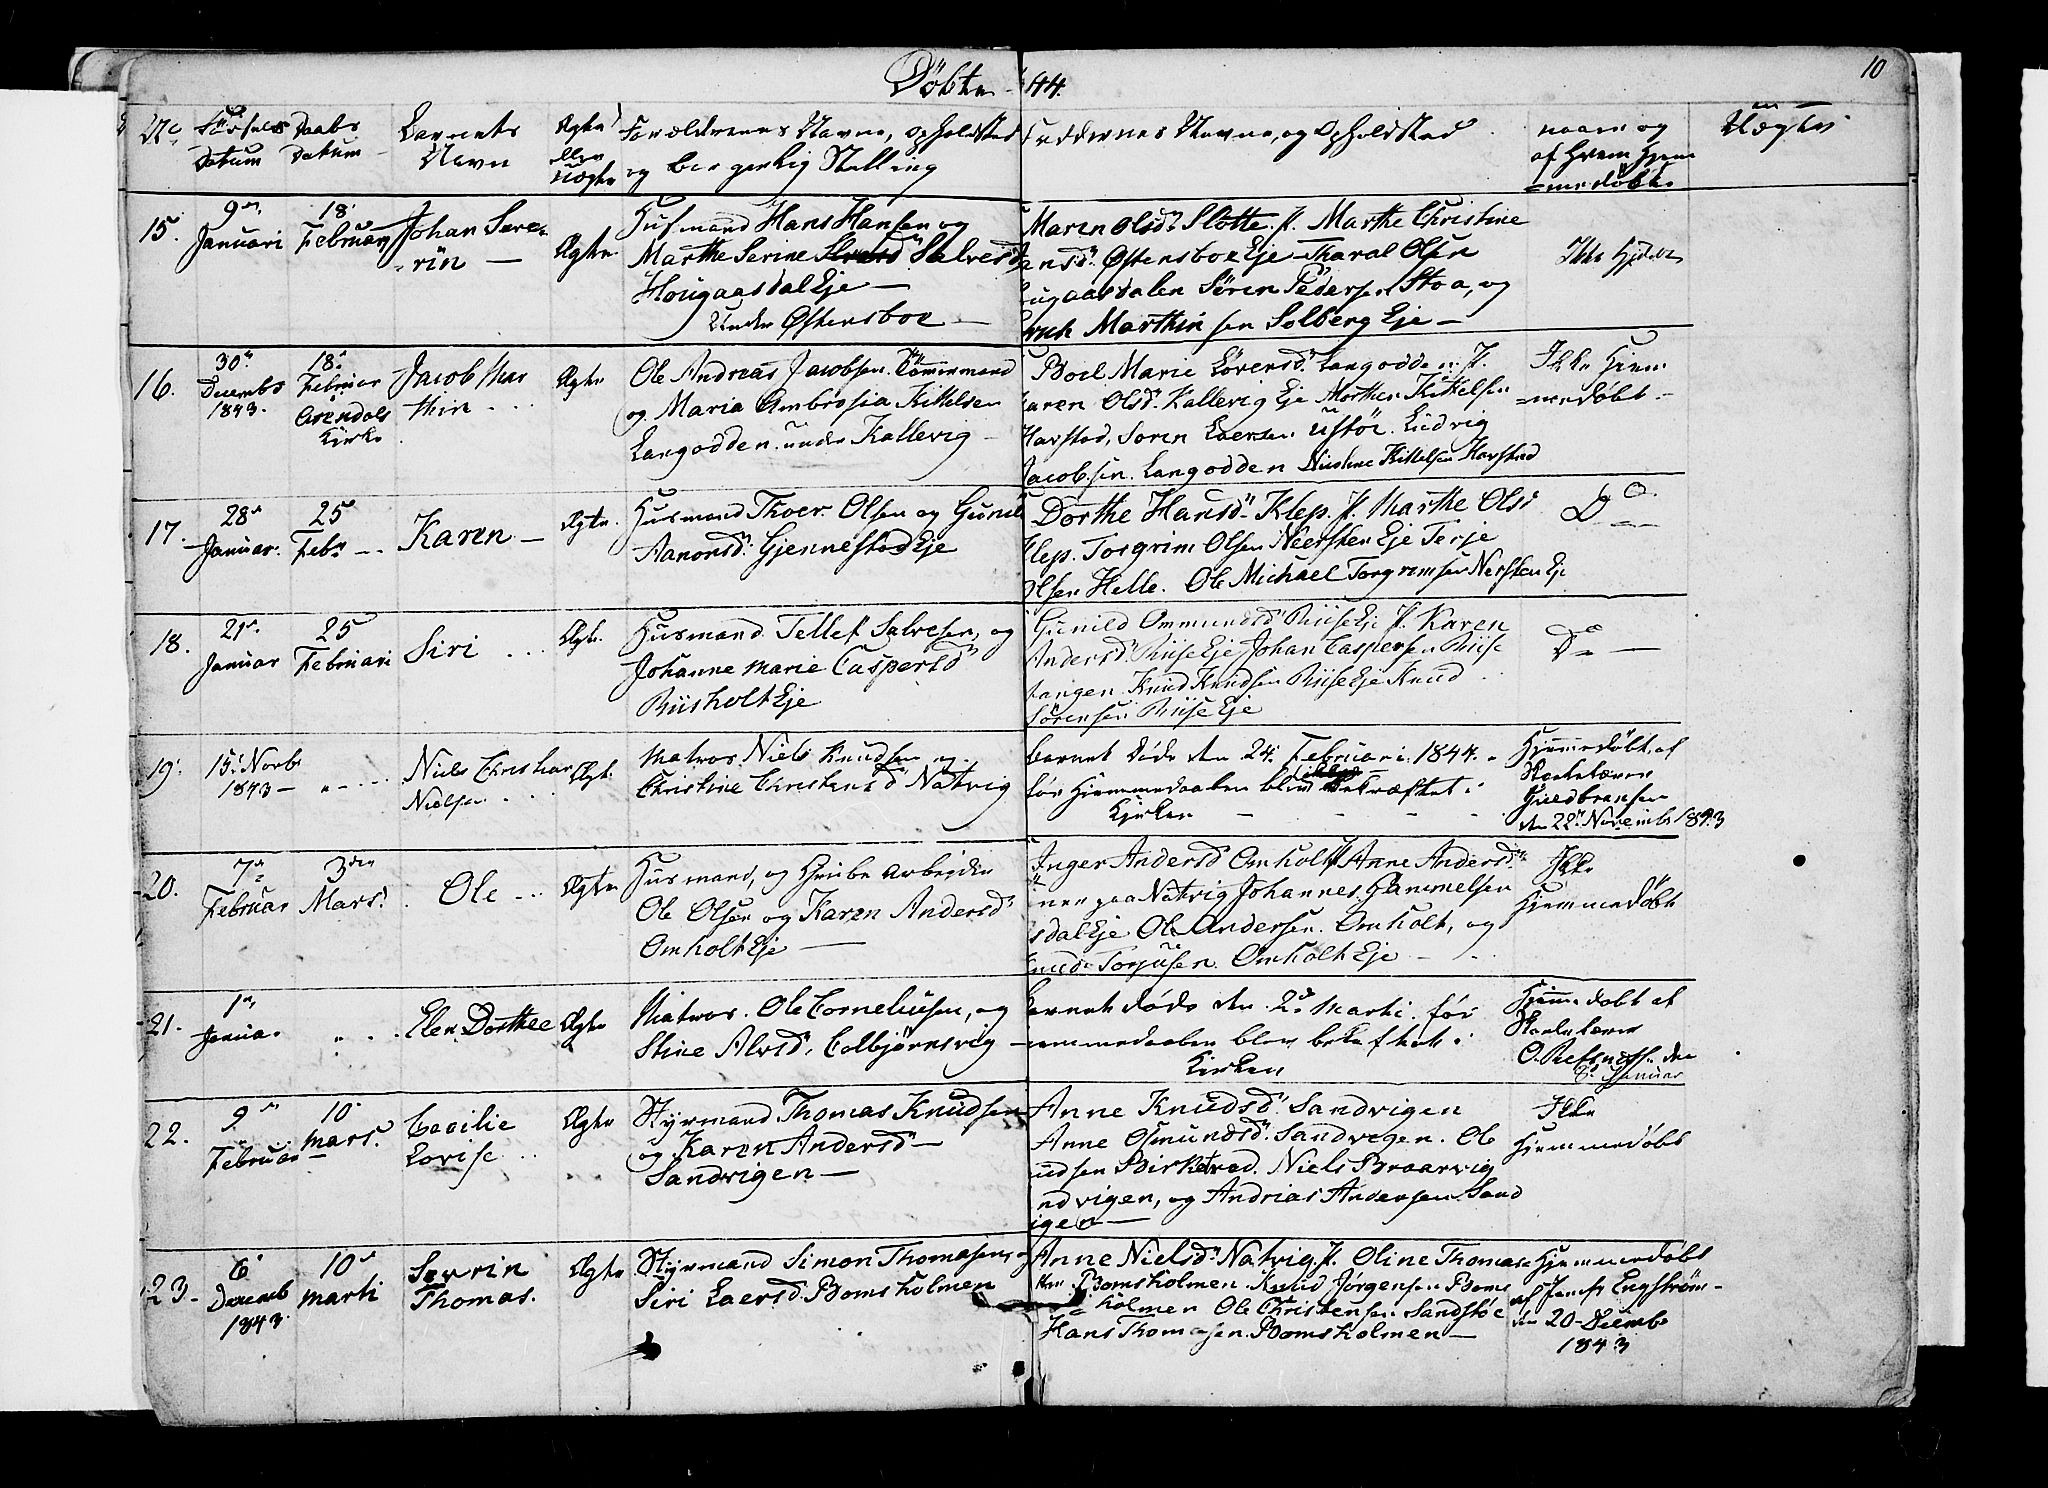 Döbte 44.
10
Nc Födsels Datum Daabs Datum Barnets Navn Ægte eller Uægte Forældrenes Navne, Opholdsted og borgerlig Stilling
Faddernes Navne, og Opholdsted naar og af Hvem Hjemmedøbt. Uægte
15. 9de Januari 18' Februari Johan Severin — Ægte.
Husmand Hans Hansen og
Marthe Serine Salvesd
Hougaasdal Eje —
Under Østensboe —
Maren Olsd: Slotte. f. Marthe Christine
Østensboe Eje Tharal Olsen
Søren Pedersen Stoa, og
Marthinsen Solberg Eje —
16. 30te Decembr 1843. 18. Februar Arendals Kirke Jacob Marthin Ægte
Ole Andreas Jacobsen Tømmermand
og Maria Ambrosia Kittelsen
Langodden under Kallevig —
Boel Marie Lørensd: Langodden f.
Karen Olsd: Kallevig Eje Morthen Kittelsen
Harstad, Soren Larsen Ludvig
Jacobsen Langodden Kittelsen Harstad
Ikke Hjemmedøbt —
17. 28de Januar. 25 Febr — Karen — Ægte.
Husmand Thoer Olsen og Gunild
Aanonsd: Gjennestad Eje
Dorthe Hansd: Klep. f. Marthe Olsd
Klep. Torgrim Olsen Neersten Eje Terje
Olsen Helle. Ole Michael Torgrimsen Nersten Eje
Do —
18. 21de Januar 25 Februari Siri Ægte.
Husmand Tellef Salvesen, og
Johanne Marie Caspersd
Riisholt Eje
Gunild Ommundsd Riise Eje f. Karen
Andersd: Riise Eje Johan Caspersen Riise
tangen Knud Knudsen Riise Eje Knud
Sørensen Riise Eje
Do —
19. 15' Novbr 1843 — Niels Christian Nielsen Ægte
Matros Niels Knudsen og
Christine Christensd Natvig
Barnet døde den 24. Februari 1844.
før Hjemmedaaben blev bekræftet i
Kirken
Hjemmedøbt af
Skolelærer
Guldbransen
den 22de Novembr 1843
20. 7de Februar 3die Mars. Ole Ægte
Husmand, og Grube arbejder
Ole Olsen og Karen Andersd
Omholt Eje —
Inger Andersd Omholt f Anne Andersd
paa Natvig Johannes Gammelsen
Ole Andersen Omholt, og
Knud Torjusen Omholt Eje
Ikke
Hjemmedøbt
21. 1ste Januar Elen Dorthee Ægte
Matros Ole Corneliusen, og
Stine Alvsd: Colbjørnsvig —
Barnet døde den 2de Marti før
Hjemmedaaben blev bekræftet i
Kirken
Hjemmedøbt af
Skolelærer
den
8de Januar
22. 9de Februar 10' Mars. Cecilie Lovise Ægte
Styrmand Thomas Knudsen
og Karen Andersd —
Sandvigen —
Anne Knudsd. Sandvigen
Anne Osmundsd: Sandvigen. Ole
Knudsen Birketved. Niels Braarvig
Sandvigen, og Andrias Andersen Sand
vigen —
Ikke
Hjemmedøbt
23. 6' Decemb 1843. 10de Marti Sevrin Thomas. Ægte
Styrmand Simon Thomasen, og
Siri Laersd: Bomsholmen
Anne Nielsd: Natvig f. Oline Thomas
Bomsholmen Knud Jørgensen Boms
holmen Ole Christensen Sandstøe
Hans Thomasen Bomsholmen —
Hjemmedøbt
af Jomfr Engstrøm
den 20 Decembr
1843